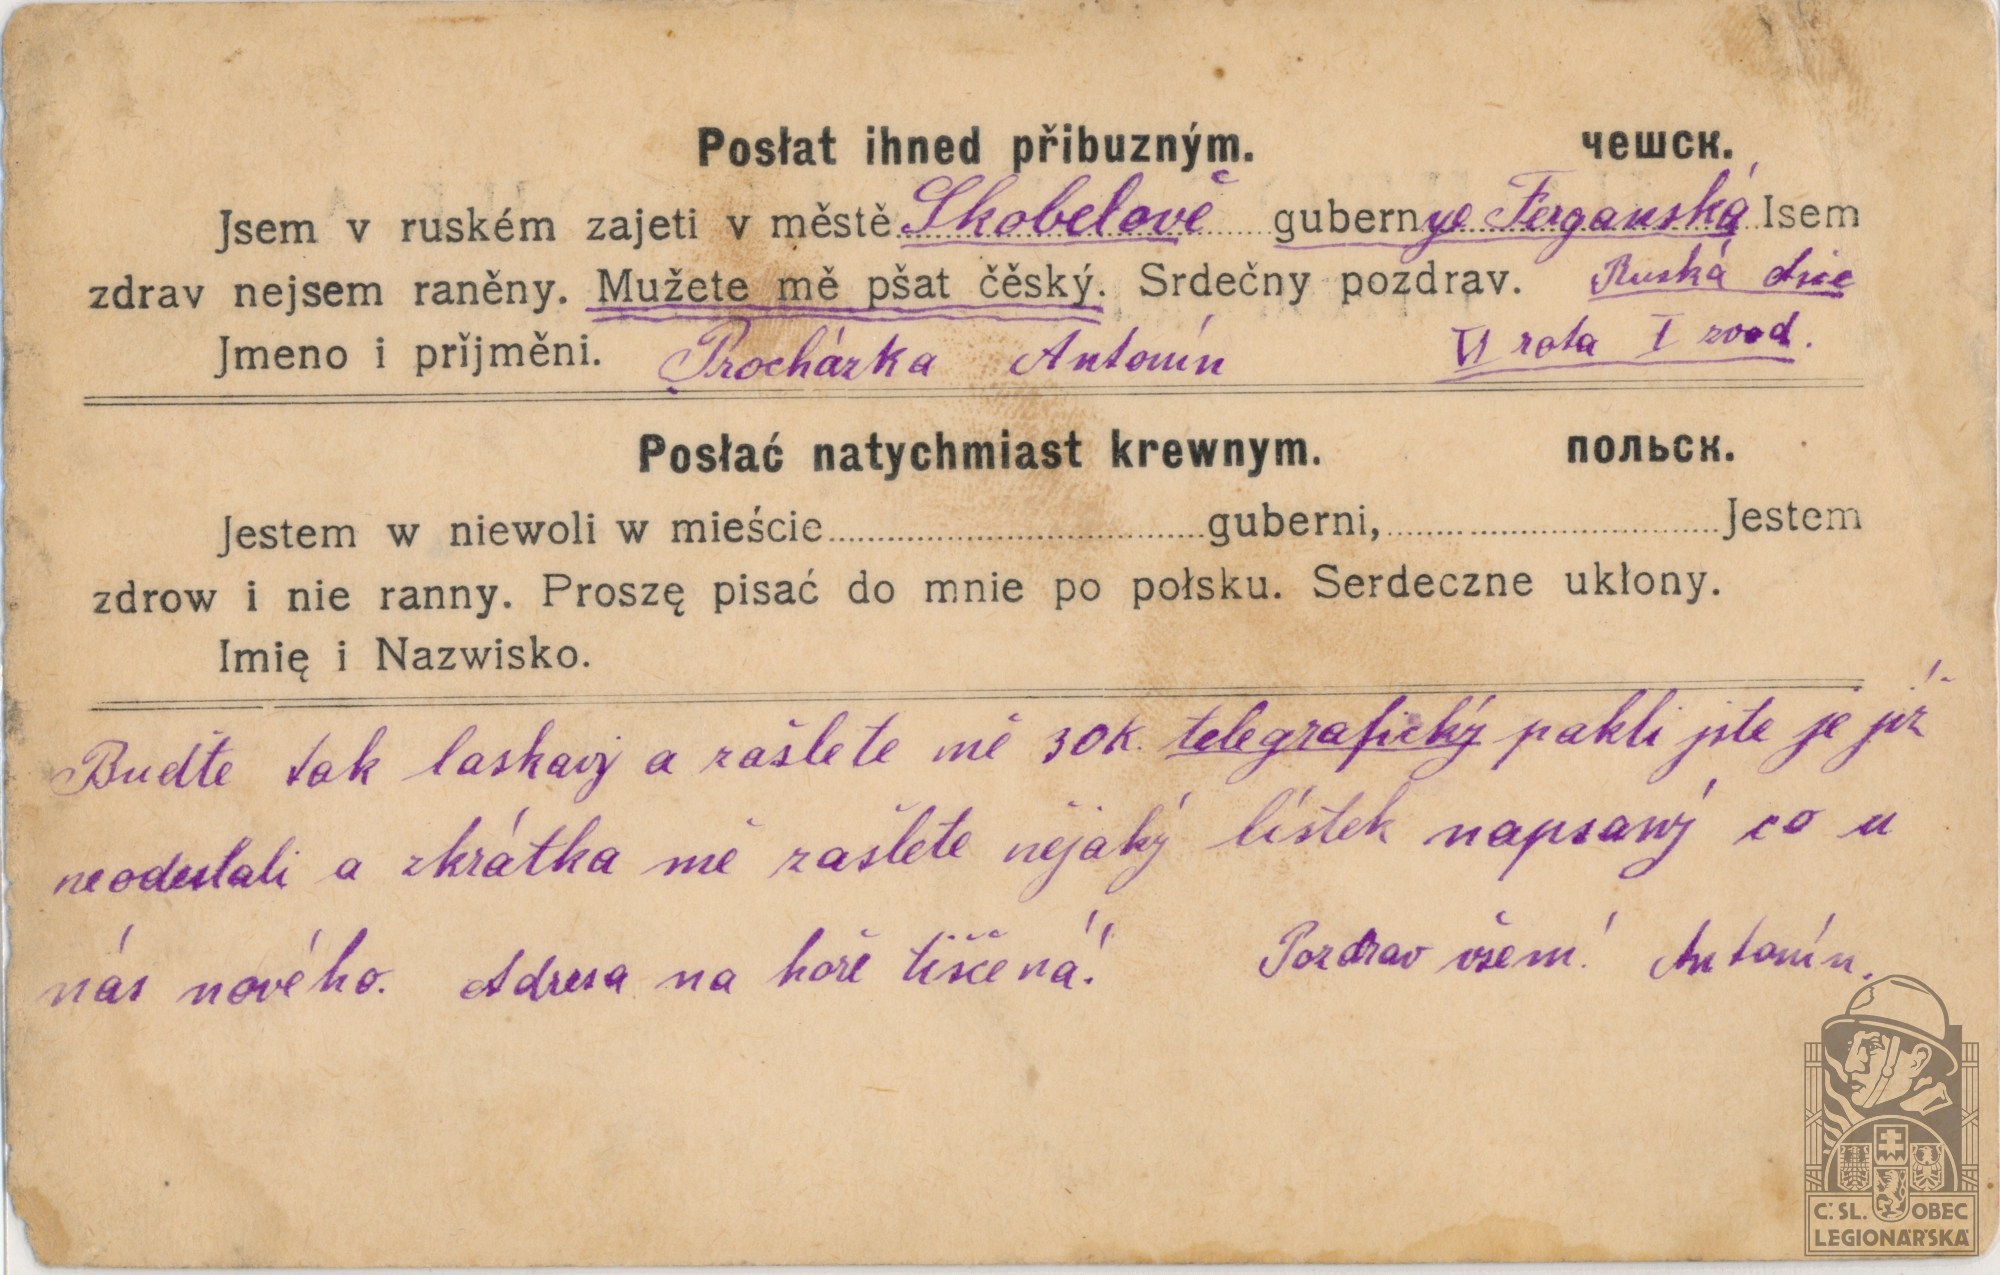 Posłat ihned přibuzným. чешск.
Jsem v ruském zajeti v městě Skobelově gubernye Ferganská Isem
zdrav nejsem raněny. Mužete mě pšat čěský. Srdečny pozdrav. Ruská Asie
Jmeno i prǐjměni. Procházka Antonín VI rota I zvod.
Posłać natychmiast krewnym. польск.
Jestem w niewoli w mieście guberni, Jestem
zdrow i nie ranny. Proszę pisać do mnie po połsku. Serdeczne ukłony.
Imię i Nazwisko.
Buďte tak laskavý a zašlete mě 30K. telegrafický pakli jste je již
neodeslali a zkrátka mě zašlete nějaký lístek napsaný co u
nás nového. Adresa na hoře tiščená! Pozdrav všem! Antonín.
Č. SL. OBEC
LEGIONÁŘSKÁ